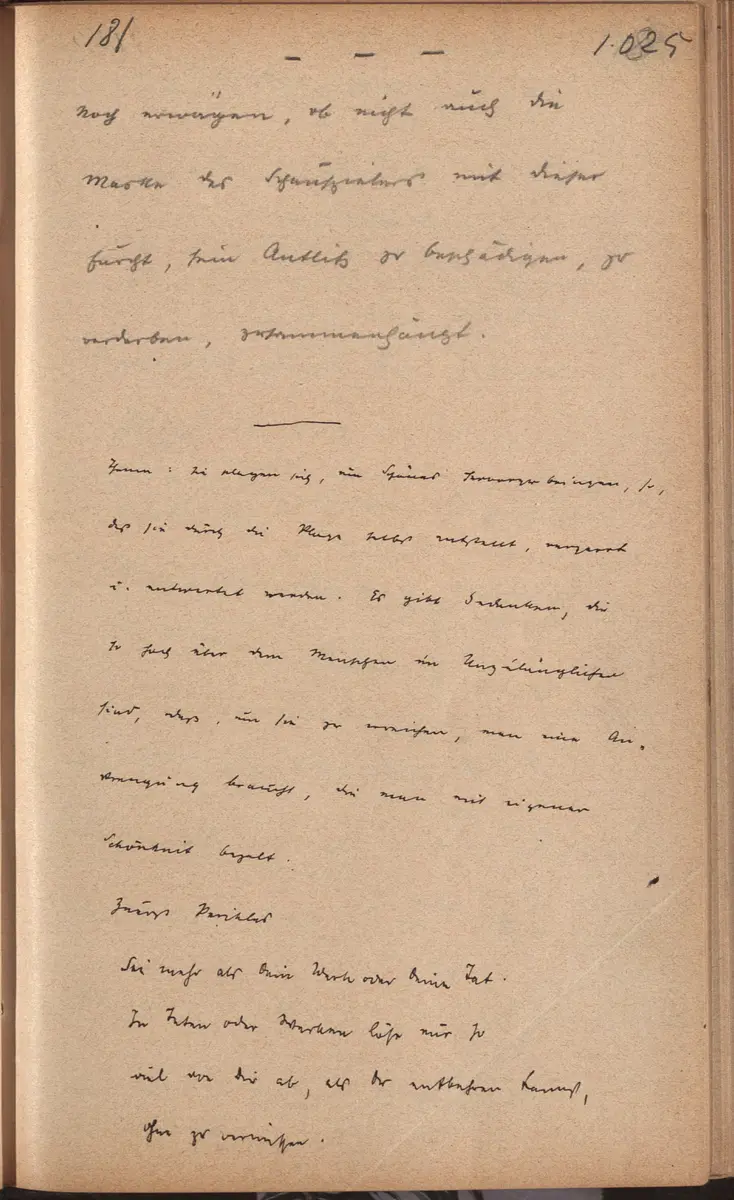 181
1.025
— — —
noch erwägen, ob nicht auch die
Maske des Schauspielers mit dieser
Furcht, sein Antlitz zu beschädigen, zu
verderben, zusammenhängt.
: Sie plagen sich, ein Schönes hervorzubringen, so,
daß sie durch die Plage selbst entstellt, verzerrt
u. entwertet werden. Es gibt Gedanken, die
so hoch über dem Menschen im Unzulänglichen
sind, daß, um sie zu erreichen, man eine An-
strengung braucht, die man mit eigener
Schönheit bezalt.
Perikles
Sei mehr als Dein Werk oder Deine Tat.
In Taten oder Werken löse nur so
viel von Dir ab, als Du entbehren kannst,
ohne zu vermissen.